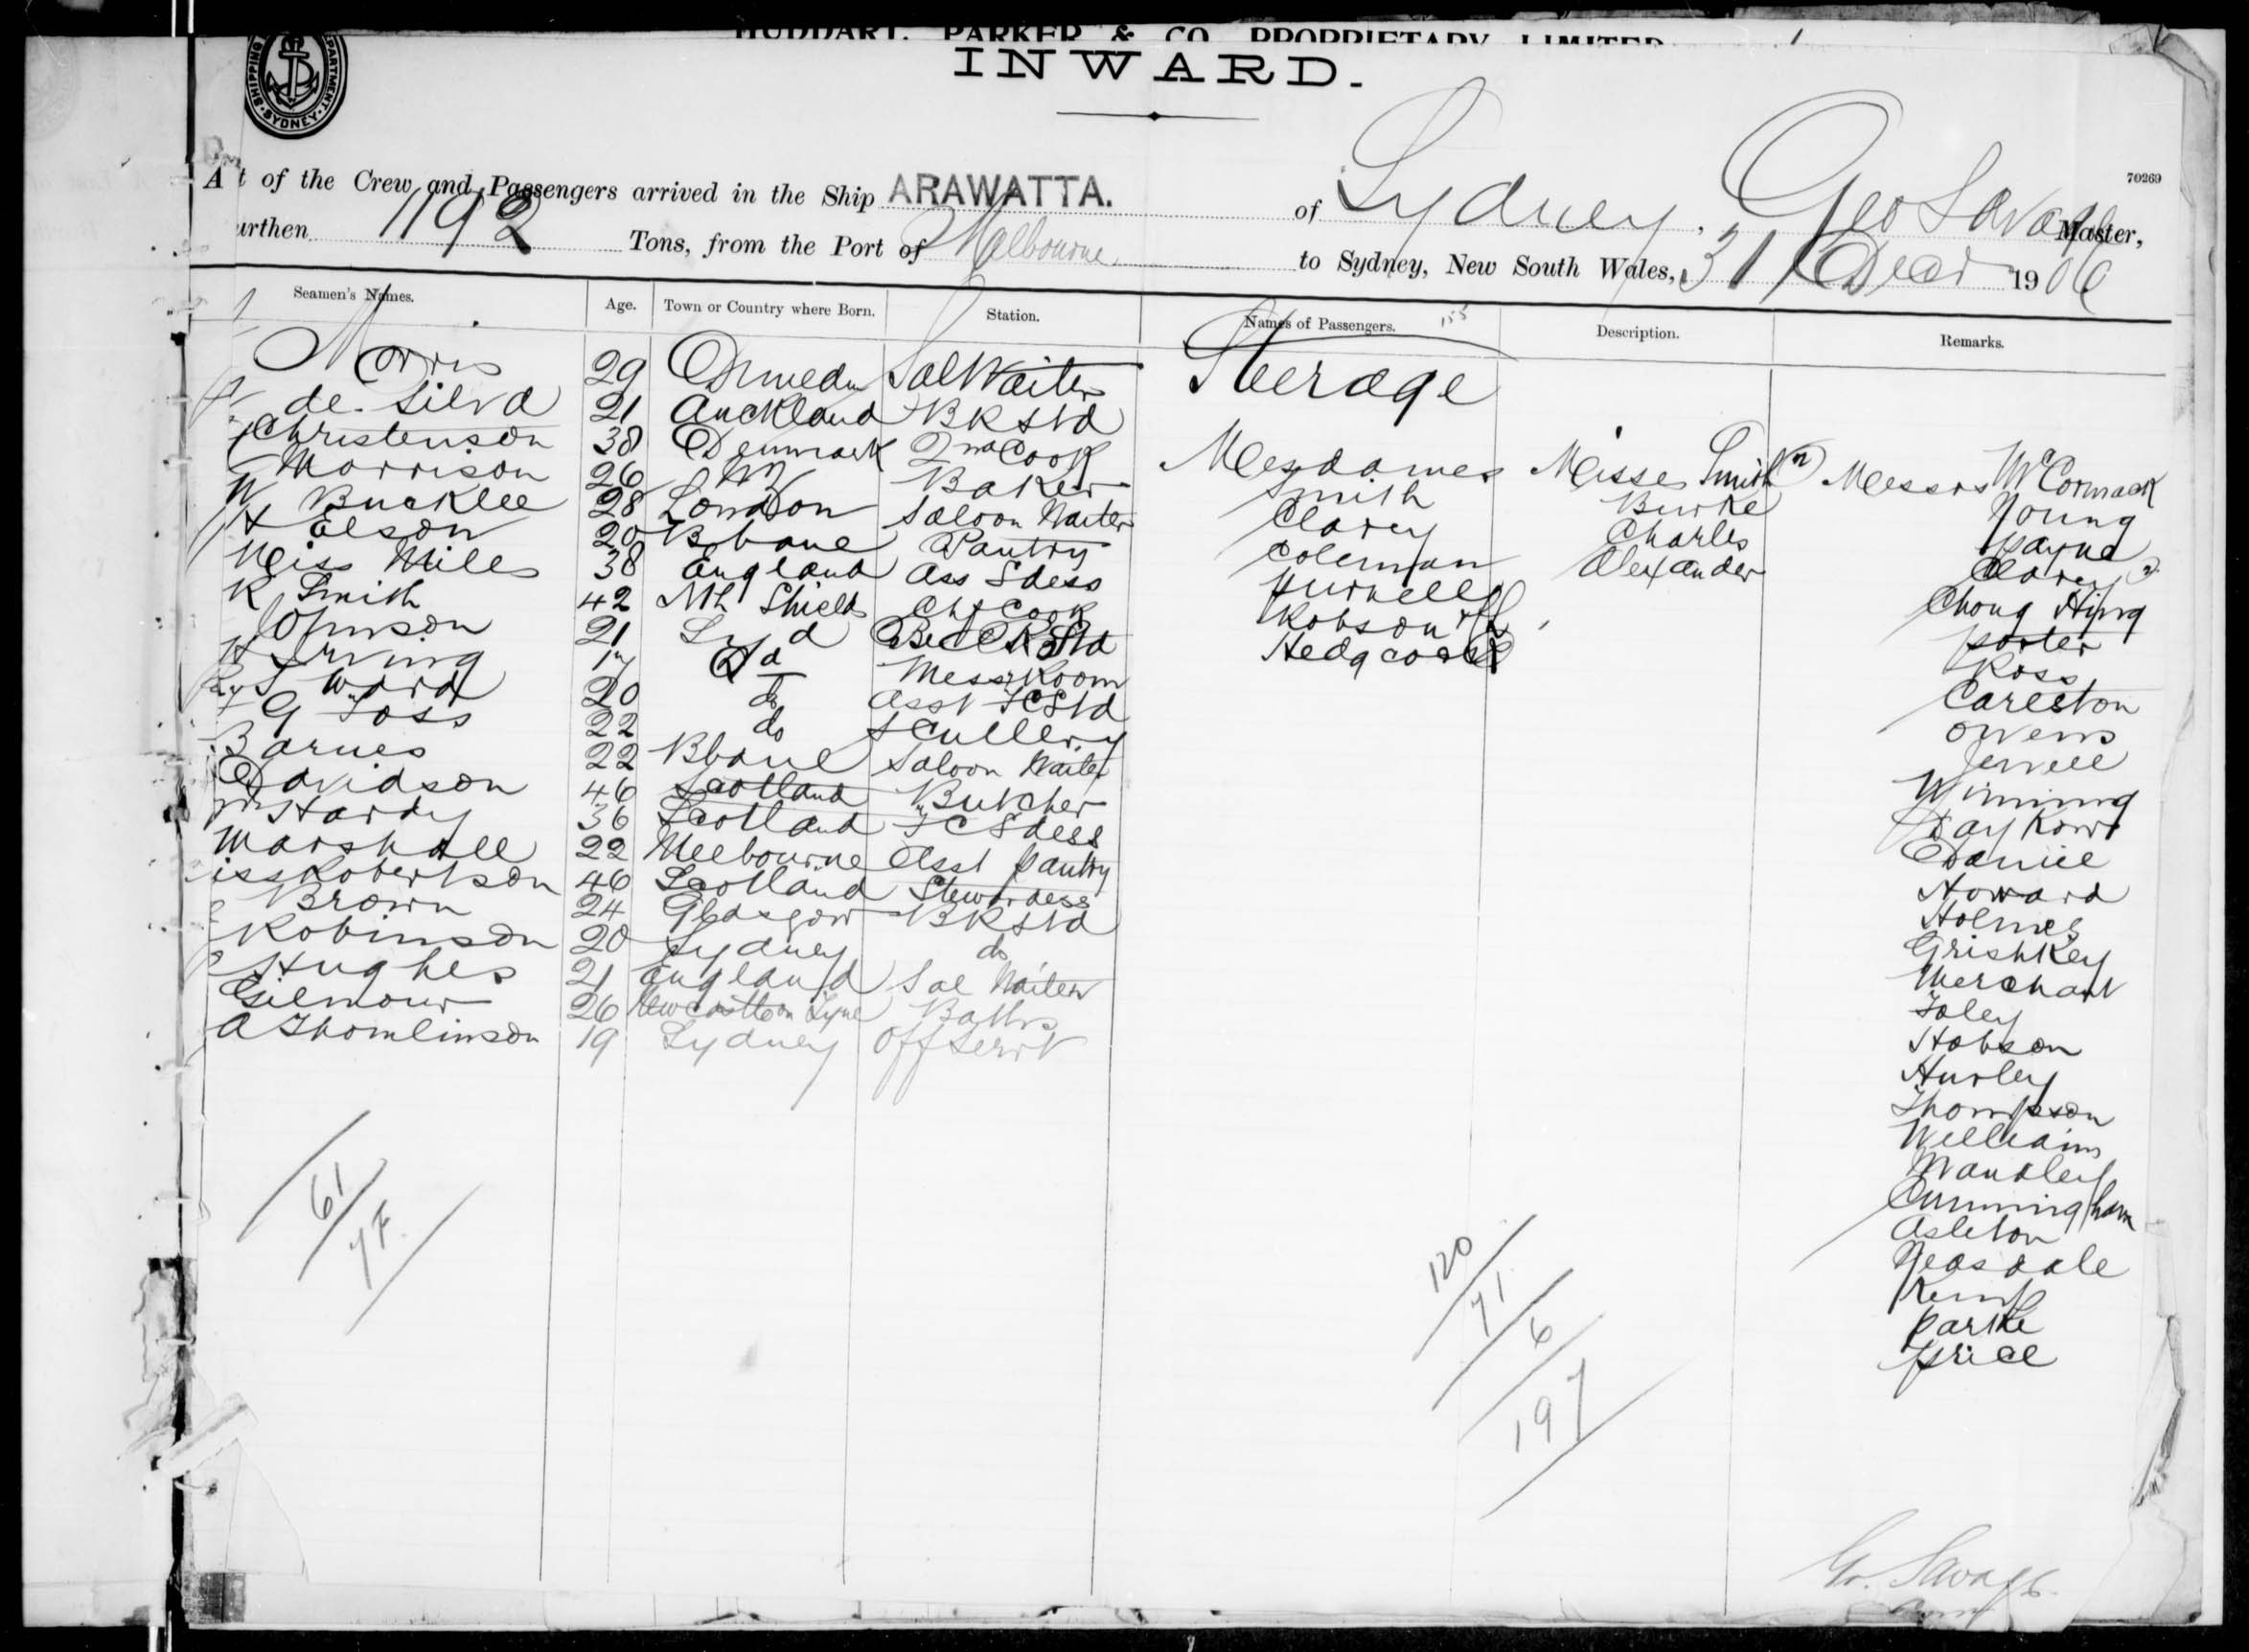 HUDDART, PARKER & CO PROPRIETARY LIMITED
INWARD.
SHIPPING DEPARTMENT SYDNEY
70269
A t of the Crew and Passengers arrived in the Ship ARAWATTA. of Sydney, Geo Savage Master,
urthen 1192 Tons, from the Port of Melbourne to Sydney, New South Wales, 31 Decr 1906
Seamen's Names. Age. Town or Country where Born. Station. Names of Passengers. Description. Remarks.
Morris 29 Sal Waiter
de Silva 21 Auckland BK Std
Christenson 38 Denmark 2nd Cook
Morrison 26 NZ Baker
W Bucklee 28 London Saloon Waiter
H Elson 20 Bbane Pantry
Miss Mills 38 England Ass Sdess
R Smith 42 Nth Shields Chf Cook
Johnson 21 Syd Std
H Irving 17 Do Mess Room
T Ward 20 do Asst FC Std
G Foss 22 do Scullery
Barnes 22 Bbane Saloon Waiter
Davidson 46 Scotland Butcher
Hardy 36 Scotland FC Sdess
Marshall 22 Melbourne Asst Pantry
iss Robertson 46 Scotland Stewardess
Brown 24 Glasgow BK Std
Robinson 20 Sydney do
Hughes 21 England Sal Waiter
Gilmour 26 Newcastle on Tyne Baths
A Thomlinson 19 Sydney Off Servt
61
77
Steerage
Mesdames
Smith
Clarey
Coleman
Hurnell
Robson
Hedgcock
Misses Smith (2)
Burke
Charles
Alexander
Messrs McCormack
Young
Payne
Clarey (2)
Chong Hing
Porter
Ross
Careston
Owens
Jewell
Winning
Day Kow
Daniel
Howard
Holmes
Grishkey
Merchant
Foley
Hobson
Hurley
Thompson
Williams
Wandley
Cunningham
Asleton
Yeasdale
Kemp
Parke
Price
120
71
6
197
G. Savage